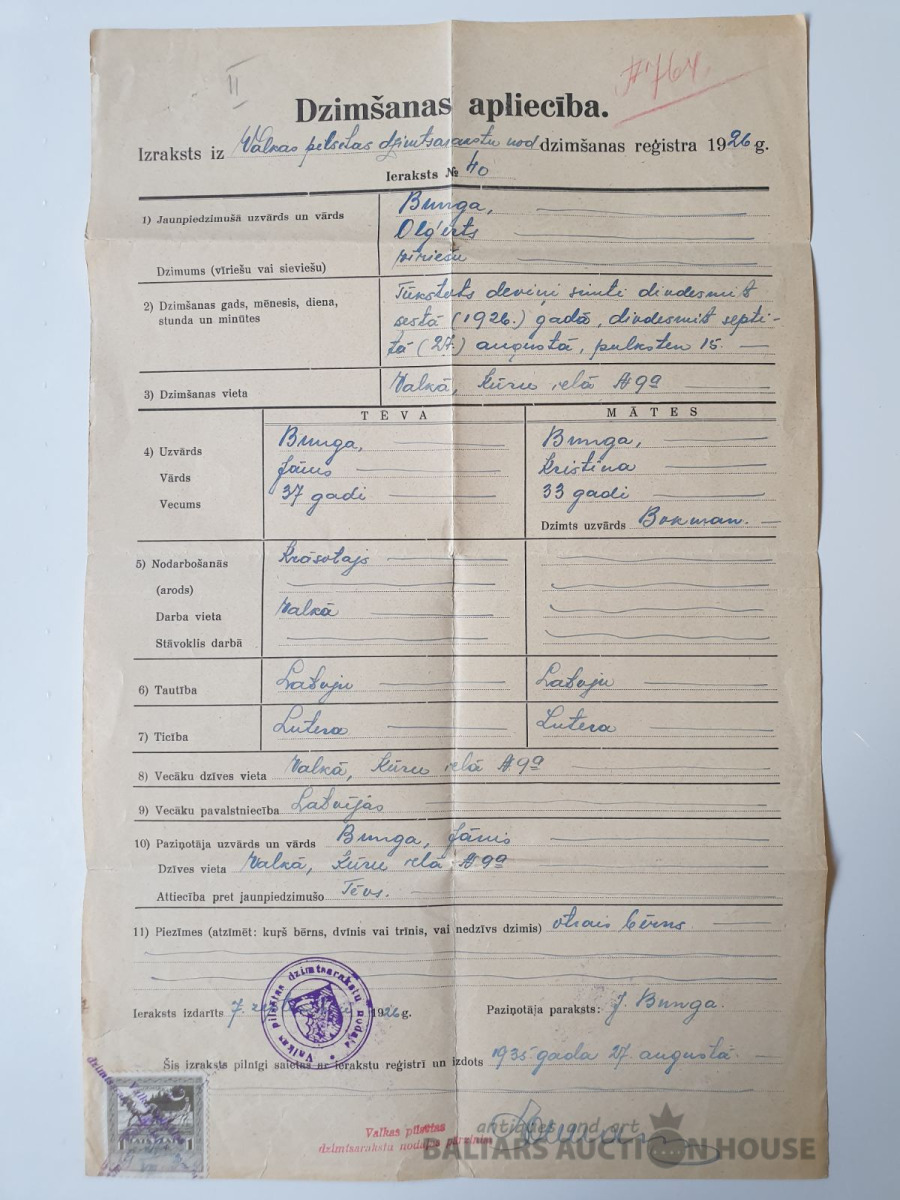 II
#764.
Dzimšanas apliecība.
Izraksts iz Valkas pilsētas dzimtsarakstu nod dzimšanas reģistra 1926 g.
Ieraksts № 40
1) Jaunpiedzimušā uzvārds un vārds Bunga,
Oļģerts
Dzimums (vīriešu vai sieviešu) vīriešu
2) Dzimšanas gads, mēnesis, diena, stunda un minūtes Tūkstots deviņi simti divdesmit
sestā (1926.) gadā, divdesmit septi-
tā (27.) augustā, pulksten 15.
3) Dzimšanas vieta Valkā, Rūru ielā № 9a
TĒVA MĀTES
4) Uzvārds Bunga, Bunga,
Vārds Jānis Kristīna
Vecums 37 gadi 33 gadi
Dzimts uzvārds Bokman.
5) Nodarbošanās Krāsotājs
(arods)
Darba vieta Valkā
Stāvoklis darbā
6) Tautība Latvju Latvju
7) Ticība Lutera Lutera
8) Vecāku dzīves vieta Valkā, Rūru ielā № 9a
9) Vecāku pavalstniecība Latvijas
10) Paziņotāja uzvārds un vārds Bunga, Jānis
Dzīves vieta Valkā, Rūru ielā № 9a
Attiecība pret jaunpiedzimušo Tēvs.
11) Piezīmes (atzīmēt: kuŗš bērns, dvīnis vai trīnis, vai nedzīvs dzimis) otrais bērns
Ieraksts izdarīts 7. 1926 g. Paziņotāja paraksts: J. Bunga.
Valkas pilsētas dzimtsarakstu nodaļa
Šis izraksts pilnīgi saietas ar ierakstu reģistrī un izdots 1935 gada 27. augustā
1
Valkas pilsētas
dzimtsarakstu nodaļas pārzinis
antiques and art
BALTARS AUCTION HOUSE